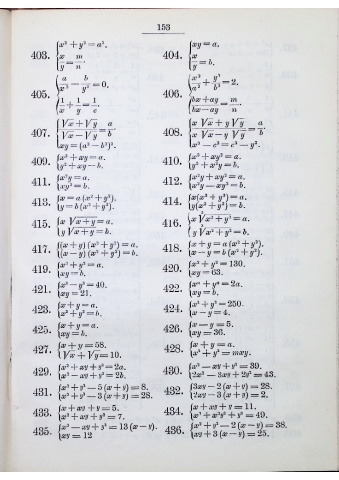 153
403. { x² + y² = a². x/y = m/n.
404. { xy = a. x/y = b.
405. { a/x³ − b/y² = 0. 1/x + 1/y = 1/c.
406. { x²/a² + y²/b² = 2. (bx+ay)/(bx−ay) = m/n.
407. { (√x + √y)/(√x − √y) = a/b. xy = (a² − b²)².
408. { (x√x + y√y)/(x√x − y√y) = a/b. x³ − c³ = c³ − y³.
409. { x² + xy = a. y² + xy = b.
410. { x³ + xy² = a. y³ + x²y = b.
411. { x²y = a. xy² = b.
412. { x²y + xy² = a. x²y − xy² = b.
413. { x = a (x² + y²). y = b (x² + y²).
414. { x(x² + y²) = a. y(x² + y²) = b.
415. { x √x + y = a. y √x + y = b.
416. { x √x² + y² = a. y √x² + y² = b.
417. { (x + y) (x² + y²) = a. (x − y) (x² + y²) = b.
418. { x + y = a (x² + y²). x − y = b (x² + y²).
419. { x² + y² = a. xy = b.
420. { x² + y² = 130. xy = 63.
421. { x² − y² = 40. xy = 21.
422. { xy = b.
423. { x + y = a. x² + y² = b.
424. { x² + y² = 250. x − y = 4.
425. { x + y = a. xy = b.
426. { x − y = 5. xy = 36.
427. { x + y = 58. √x + √y = 10.
428. { x + y = a. x² + y² = mxy.
429. { x² + xy + y² = 2a. x² − xy + y² = 2b.
430. { x² − xy + y² = 39. 2x² − 3xy + 2y² = 43.
431. { x² + y² − 5 (x + y) = 8. x² + y² − 3 (x + y) = 28.
432. { 3xy − 2 (x + y) = 28. 2xy − 3 (x + y) = 2.
433. { x + xy + y = 5. x² + xy + y² = 7.
434. { x + xy + y = 11. x² + x²y² + y² = 49.
435. { x² − xy + y² = 13 (x − y). xy = 12
436. { x² + y² − 2 (x − y) = 38. xy + 3 (x − y) = 25.